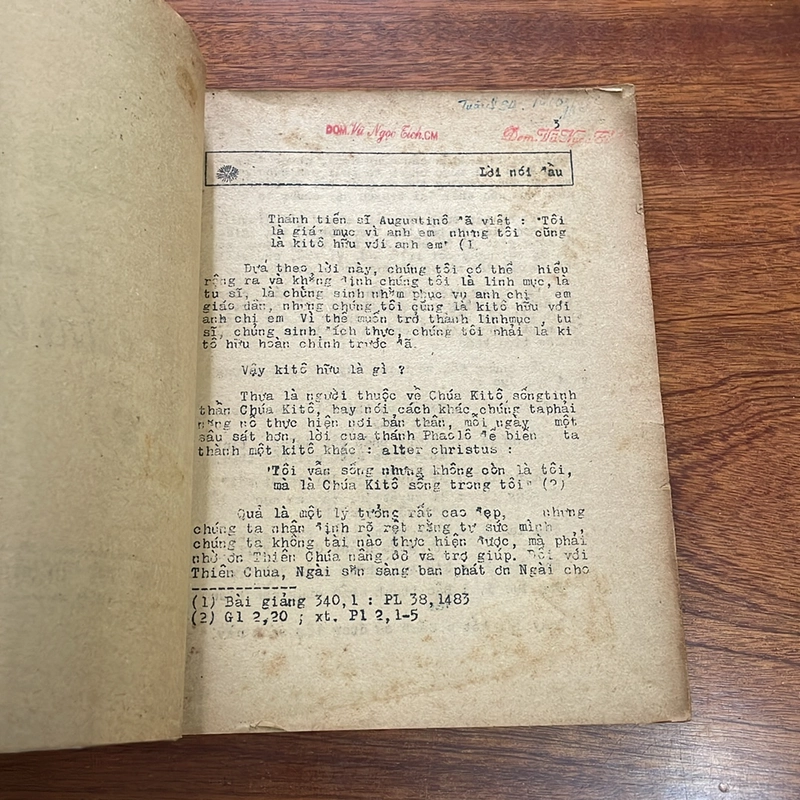 DOM.Vũ Ngọc Bích,CM
Dom.Vũ Ngọc Bích
3
Lời nói đầu
Thánh tiến sĩ Augustinô đã viết : "Tôi
là giám mục vì anh em nhưng tôi cũng
là kitô hữu với anh em" (1
Dựa theo lời này, chúng tôi có thể hiểu
rộng ra và khẳng định chúng tôi là linh mục,là
tu sĩ, là chủng sinh nhằm phục vụ anh chị em
giáo dân, nhưng chúng tôi cũng là kitô hữu với
anh chị em Vì thế muốn trở thành linhmục , tu
sĩ, chủng sinh đích thực, chúng tôi phải là ki
tô hữu hoàn chỉnh trước đã.
Vậy kitô hữu là gì ?
Thưa là người thuộc về Chúa Kitô,sốngtinh
thần Chúa Kitô, hay nói cách khác,chúng taphải
năng nổ thực hiện nơi bản thân, mỗi ngày một
sâu sát hơn, lời của thánh Phaolô để biến ta
thành một kitô khác : alter christus :
"Tôi vẫn sống nhưng không còn là tôi,
mà là Chúa Kitô sống trong tôi" (2)
Quả là một lý tưởng rất cao đẹp, nhưng
chúng ta nhận định rõ rệt rằng tự sức mình ,
chúng ta không tài nào thực hiện được, mà phải
nhờ ơn Thiên Chúa nâng đỡ và trợ giúp. Đối với
Thiên Chúa, Ngài sẵn sàng ban phát ơn Ngài cho
(1) Bài giảng 340,1 : PL 38,1483
(2) Gl 2,20 ; xt. Pl 2,1-5